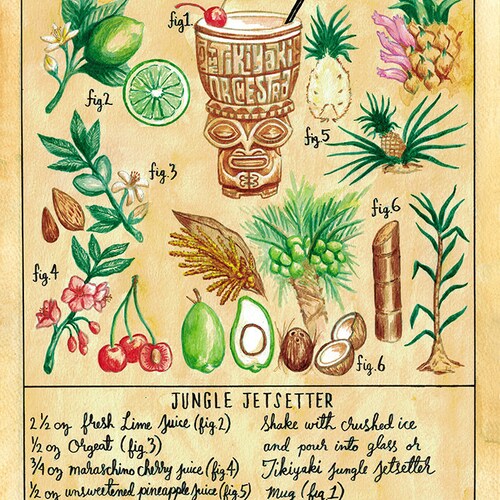 fig1.
THE
TIKIYAKI
ORCESTRA
fig.2
fig.5
fig.3
fig.6
fig.4
fig.6
JUNGLE JETSETTER
2 1/2 oz fresh Lime Juice (fig.2)
1/2 oz Orgeat (fig.3)
3/4 oz maraschino cherry juice (fig.4)
1/2 oz unsweetened pineapple juice (fig.5)
Shake with crushed ice
and pour into glass or
Tikiyaki jungle jetsetter
Mug (fig.1)